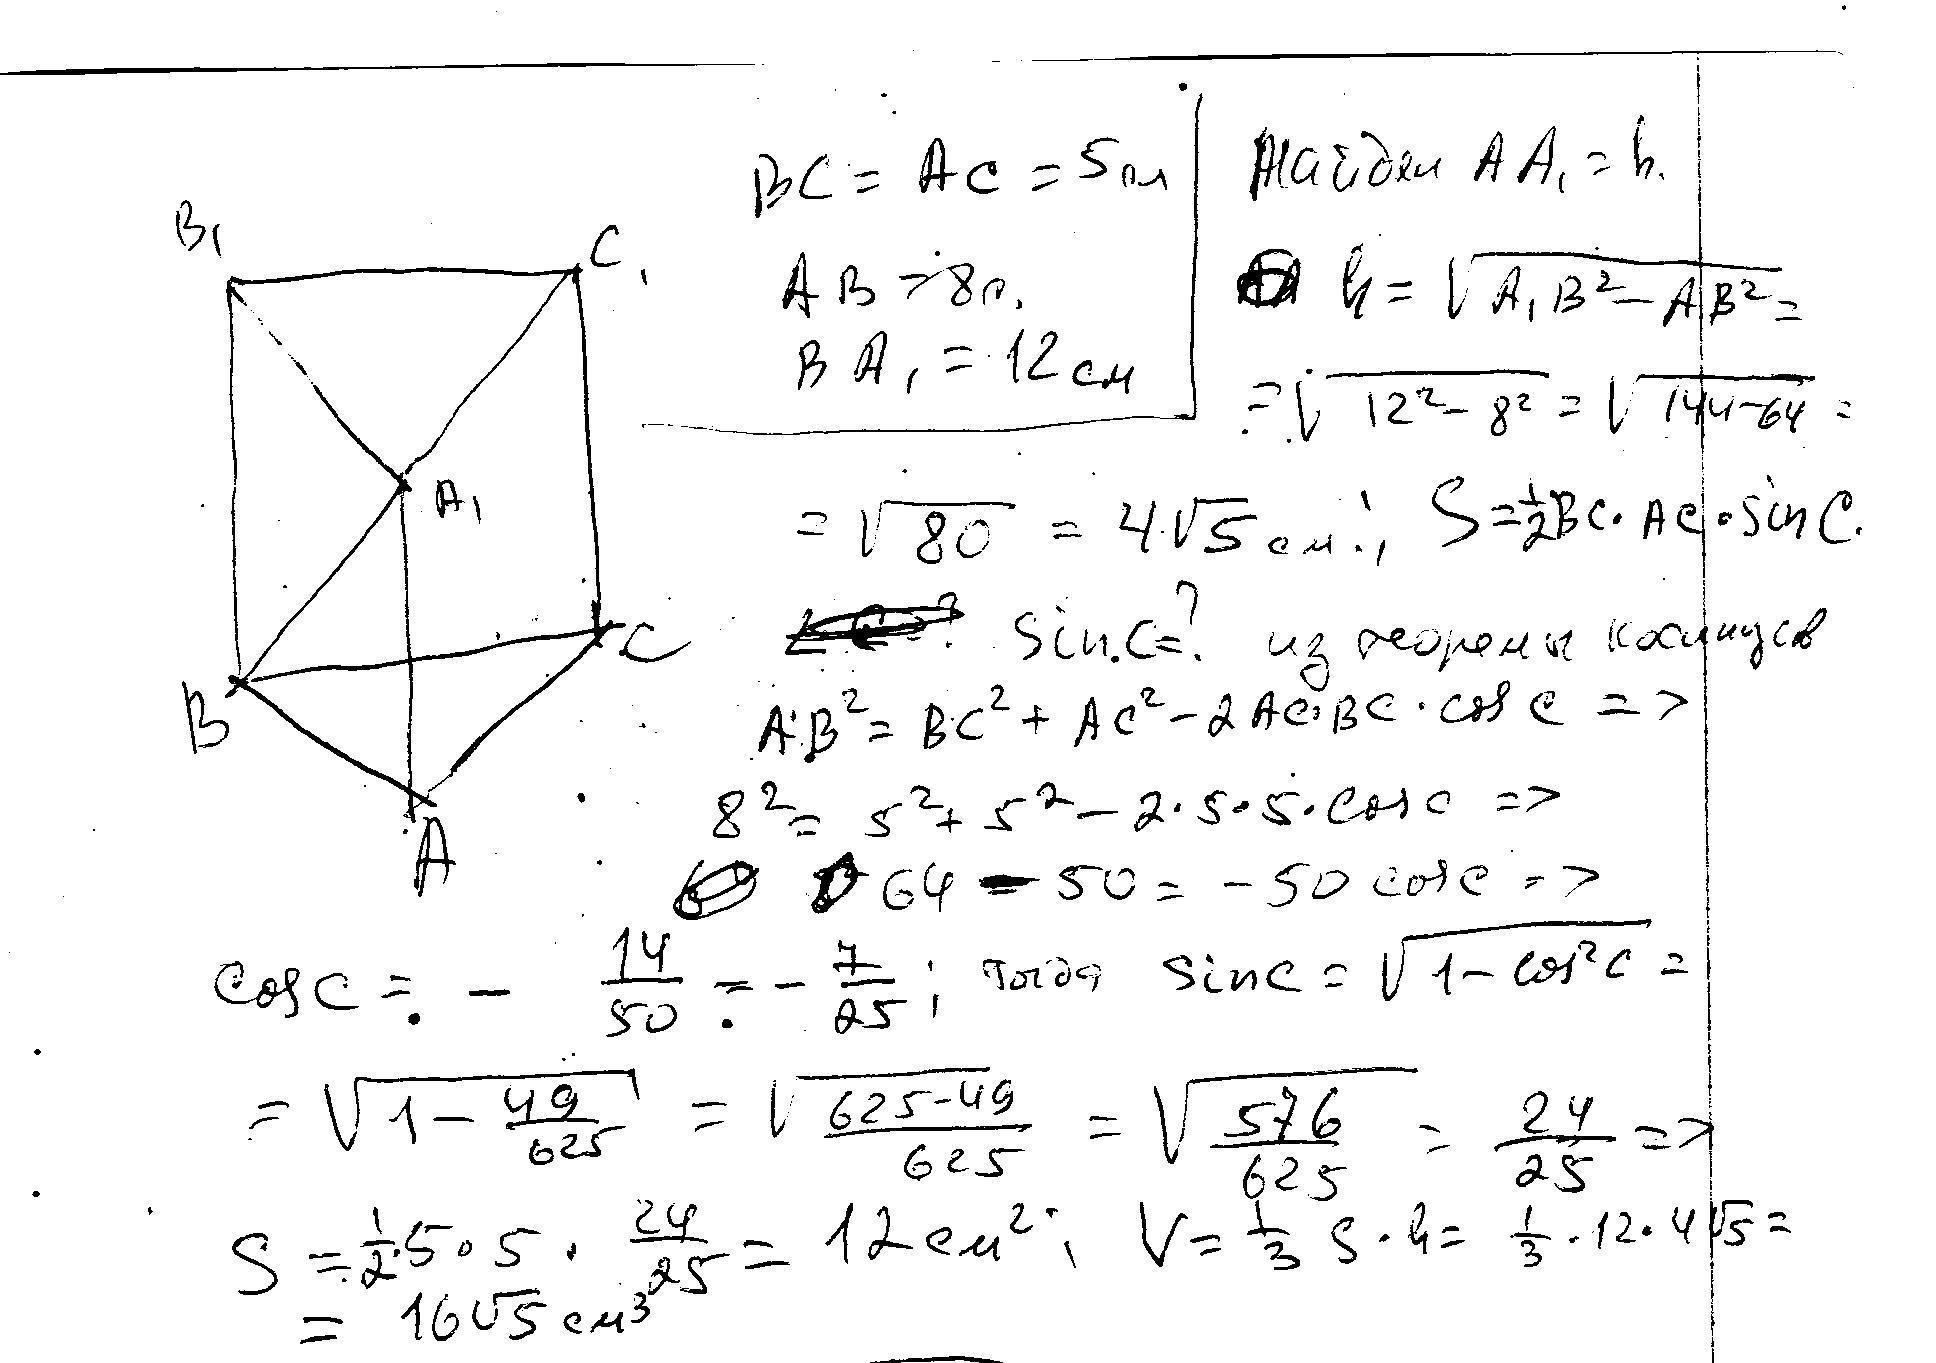 B₁
C₁
A₁
B
C
A
BC = AC = 5см
AB = 8см.
BA₁ = 12 см
Найдем AA₁ = h.
h = √(A₁B² - AB²) =
= √(12² - 8²) = √(144-64) =
= √80 = 4√5 см.; S = 1/2 BC · AC · sin C.
sin C = ? из теоремы косинусов
AB² = BC² + AC² - 2AC·BC · cos C =>
8² = 5² + 5² - 2·5·5·cos C =>
64 - 50 = -50 cos C =>
cos C = - 14/50 = - 7/25; тогда sin C = √(1 - cos²C) =
= √(1 - 49/625) = √((625-49)/625) = √(576/625) = 24/25 =>
S = 1/2·5·5 · 24/25 = 12 см²; V = 1/3 S·h = 1/3 · 12 · 4√5 =
= 16√5 см³